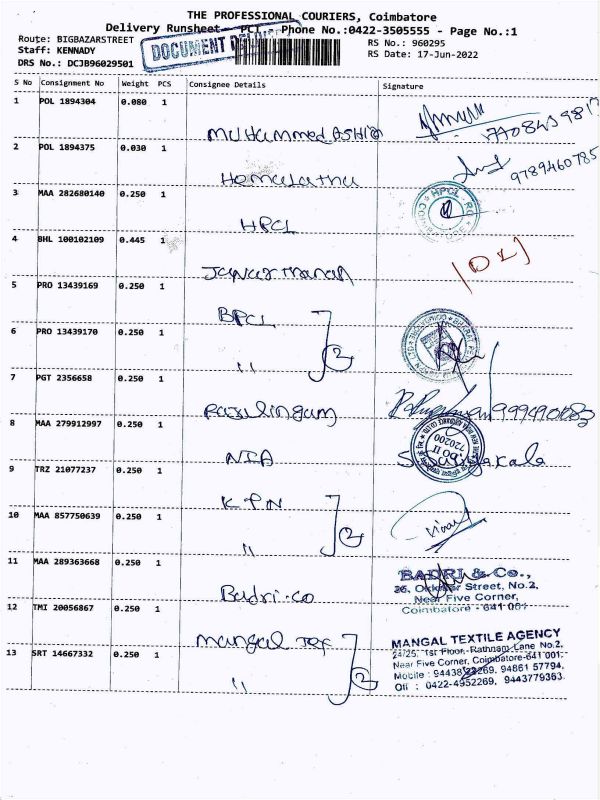 THE PROFESSIONAL COURIERS, Coimbatore
Delivery Runsheet - PCT Phone No.:0422-3505555 - Page No.:1
Route: BIGBAZARSTREET
DOCUMENT
RS No.: 960295
Staff: KENNADY
RS Date: 17-Jun-2022
DRS No.: DCJB96029501
S No Consignment No Weight PCS Consignee Details Signature
1 POL 1894304 0.080 1
Muhammed Ashiq
2 POL 1894375 0.030 1
Hemalatha 9789460785
3 MAA 282680140 0.250 1
HPCL
HPCL
4 BHL 100102109 0.445 1
Janarthanan
5 PRO 13439169 0.250 1
BPCL
6 PRO 13439170 0.250 1
" 2
7 PGT 2356658 0.250 1
Rasulingam
8 MAA 279912997 0.250 1
NIA
9 TRZ 21077237 0.250 1
KPN
10 MAA 857750639 0.250 1
" 2
11 MAA 289363668 0.250 1
Badri.co
BADRI & Co.,
Street, No.2,
Near Five Corner,
Coimbatore - 641 001
12 TMI 20056867 0.250 1
Mangal Tex
13 SRT 14667332 0.250 1
" 2
MANGAL TEXTILE AGENCY
24/25, 1st Floor, Rathnam Lane No.2,
Near Five Corner, Coimbatore-641 001.
Mobile : 94861 57794,
Off : 0422-4952269, 9443779363